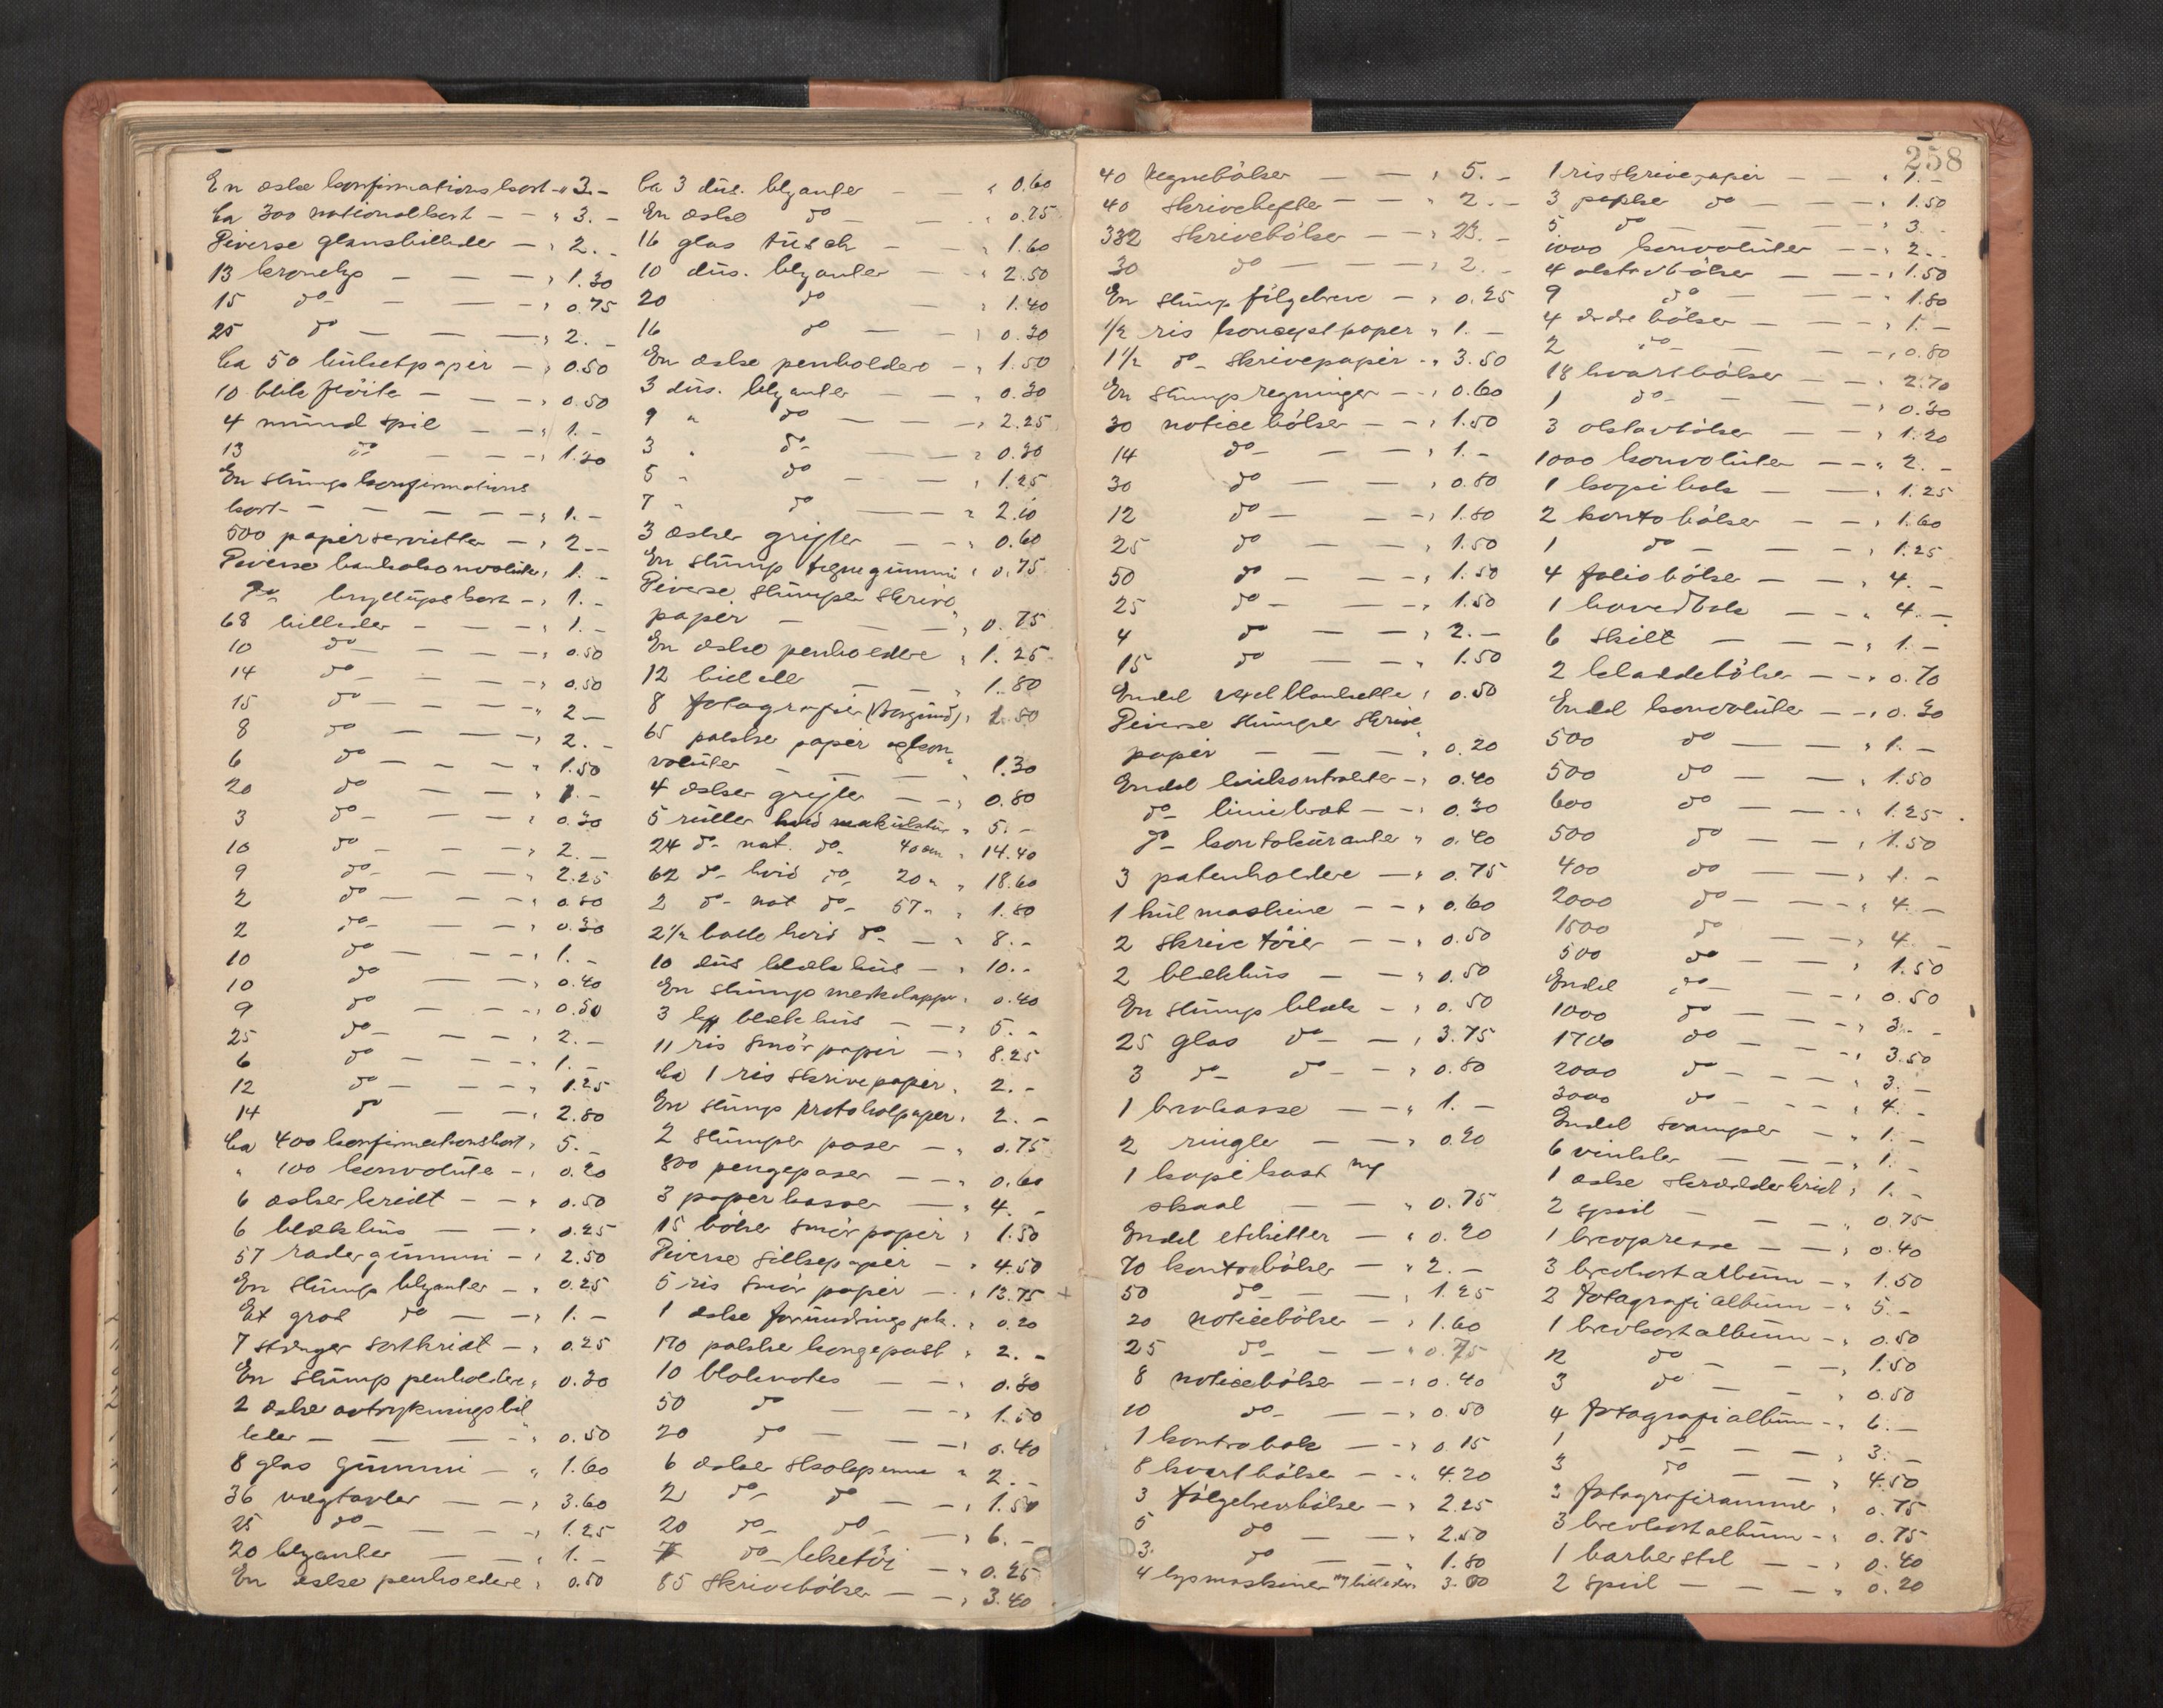 En æske konfirmationskort - „ 3. -
Ca 300 nationalkort - - „ 3. -
Diverse glansbilleder - „ 2. -
13 - - - „ 1.30
15 do - - - „ 0.75
25 do - - - „ 2. -
Ca 50 silketpapir - „ 0.50
10 blik fløite - - - „ 0.50
4 mundspil - - „ 1. -
13 do - - „ 1.30
En stump konfirmations
kort - - - - - „ 1. -
500 papirservietter - „ 2. -
Diverse konvolutter „ 1. -
Do bryllupskort - „ 1. -
68 billeder - - - „ 1. -
10 do - - - „ 0.50
14 do - - - „ 0.50
15 do - - - „ 2 -
8 do - - - „ 2. -
6 do - - - „ 1.50
20 do - - - „ 1. -
3 do - - - „ 0.30
10 do - - - „ 2. -
9 do - - - „ 2.25
2 do - - - „ 0.80
2 do - - - „ 0.30
10 do - - - „ 1. -
10 do - - - „ 0.40
9 do - - - „ 0.50
25 do - - - „ 2. -
6 do - - - „ 1. -
12 do - - - „ 1.25
14 do - - „ 2.80
Ca 400 konfirmationskort „ 5. -
„ 100 konvolute - „ 0.20
6 æsker kridt - - „ 0.50
6 blækhus - - „ 0.25
57 radergummi - „ 2.50
En stump blyanter - „ 0.25
Et gros do - - „ 1. -
7 stænger sortkridt - „ 0.25
En stump penholdere „ 0.30
2 æsker avtrykningsbil
leder - - - - „ 0.50
8 glas gummi - „ 1.60
36 vægtavler - - „ 3.60
25 do - - - „ 1.25
20 blyanter - - „ 1. -
En æske penholdere „ 0.50
Ca 3 dus. blyanter - - „ 0.60
En æske do - - „ 0.25
16 glas tusch - - „ 1.60
10 dus. blyanter - - „ 2.50
20 do „ 1.40
16 do - - „ 0.30
En æske penholdere - „ 1.50
3 dus. blyanter - - „ 0.30
9 „ do - - „ 2.25
3 „ do - - „ 0.30
5 „ do - - „ 1.25
7 „ do - - „ 2.10
3 æsker grifler - - „ 0.60
En stump tegnegummi „ 0.75
Diverse stumper skrive
papir - - - „ 0.75
En æske penholdere „ 1.25
12 - - „ 1.80
8 fotografier (Borgund) „ 1.50
65 pakker papir og kon
voluter - - - „ 1.30
4 æsker grifler - - „ 0.80
5 ruller hvid makulatur „ 5. -
24 do nat. do 40 cm „ 14.40
62 do hvid do 20 „ „ 18.60
2 do nat do 57 „ „ 1.80
2½ balle hvid do - „ 8. -
10 dus blækhus - „ 10. -
En stump merkelapper „ 0.40
3 blækhus - - „ 5. -
11 ris smørpapir - „ 8.25
Ca 1 ris skrivepapir „ 2. -
En stump protokolpapir „ 2. -
2 stumper poser - „ 0.75
800 pengeposer - - „ 0.60
3 papirkasser - „ 4. -
15 bøker smørpapir „ 1.50
Diverse silkepapir - „ 4.50
5 ris smør papir - „ 13.75 +
1 æske forundrings pk. „ 0.20
170 pakker kongepost „ 2. -
10 bloknotes - - „ 0.30
50 do - - „ 1.50
20 do - - „ 0.40
6 æsker skolepenne „ 2. -
2 do do - - „ 1.50
20 do do - - „ 6. -
7 do leketøi - „ 0.25
85 skrivebøker - - „ 3.40
258
40 regnebøker - - „ 5. -
40 skrivehefter - - „ 2. -
332 skrivebøker - - „ 23. -
30 do - - - „ 2. -
En stump følgebreve - „ 0.25
½ ris konceptpapir „ 1. -
1½ do skrivepapir - „ 3.50
En stump regninger - - „ 0.60
30 noticebøker - - „ 1.50
14 do - - „ 1. -
30 do - - „ 0.80
12 do - - „ 1.80
25 do - - „ 1.50
50 do - - „ 1.50
25 do - - „ 1.50
4 do - - „ 2. -
15 do - - „ 1.50
Endel vexelblanketter „ 0.50
Diverse stumper skrive
papir - - - „ 0.20
Endel leiekontrakter - „ 0.40
do liniebræt - - „ 0.30
do kontokuranter „ 0.40
3 patenholdere - „ 0.75
1 hulmaskine - - „ 0.60
2 skrivetøier - - „ 0.50
2 blækhus - - „ 0.50
En stump blæk - „ 0.50
25 glas do - „ 3.75
3 do do - „ 0.80
1 brevkasse - - „ 1. -
2 ringler - - „ 0.20
1 kopikost m/
skaal - - „ 0.75
Endel etiketter - „ 0.20
70 kontrabøker - „ 2. -
50 do - - „ 1.25
20 noticebøker - „ 1.60
25 do - - „ 0.75
8 noticebøker - - „ 0.40
10 do - - „ 0.50
1 kontrabok - - „ 0.15
8 kvartbøker - - „ 4.20
3 følgebrevbøker - „ 2.25
5 do - - „ 2.50
3 do - - „ 1.80
4 lysmaskiner m/ billeder 3.00
1 ris skrivepapir - - „ 1. -
3 pakker do - - „ 1.50
5 do - - „ 3. -
1000 konvoluter - - „ 2. -
4 oktavbøker - - „ 1.50
9 do - - „ 1.80
4 bøker - - „ 1. -
2 do - - „ 0.80
18 kvartbøker - - „ 2.70
1 do - - „ 0.30
3 oktavbøker - - „ 1.20
1000 konvoluter - - „ 2. -
1 kopibok - - „ 1.25
2 kontobøker - - „ 1.60
1 do - - „ 1.25
4 foliobøker - - „ 4. -
1 hovedbok - - „ 4. -
6 skilt - - - „ 1. -
2 kladdebøker - - „ 0.70
Endel konvoluter - - „ 0.30
500 do - - „ 1. -
500 do - - „ 1.50
600 do - - „ 1.25
500 do - - „ 1.50
400 do - - „ 1. -
2000 do - - „ 4. -
1500 do - - „ 4. -
500 do - - „ 1.50
Endel do - - „ 0.50
1000 do - - „ 3. -
1700 do - - „ 3.50
2000 do - - „ 3. -
3000 do - - „ 4. -
Endel svamper - - „ 1. -
6 vinkler - - - „ 1. -
1 æske skrædderkridt „ 1. -
2 speil - - - „ 0.75
1 brevpresse - - „ 0.40
3 brevkortalbum - „ 1.50
2 fotografialbum - „ 5. -
1 brevkortalbum - „ 0.50
12 do - - „ 1.50
3 do - - „ 0.50
4 fotografialbum - „ 6. -
1 do - - „ 3. -
3 do - - „ 4.50
3 fotografirammer „ 0.75
3 brevkortalbum - „ 0.75
1 barberstel - - „ 0.40
2 speil - - - „ 0.20